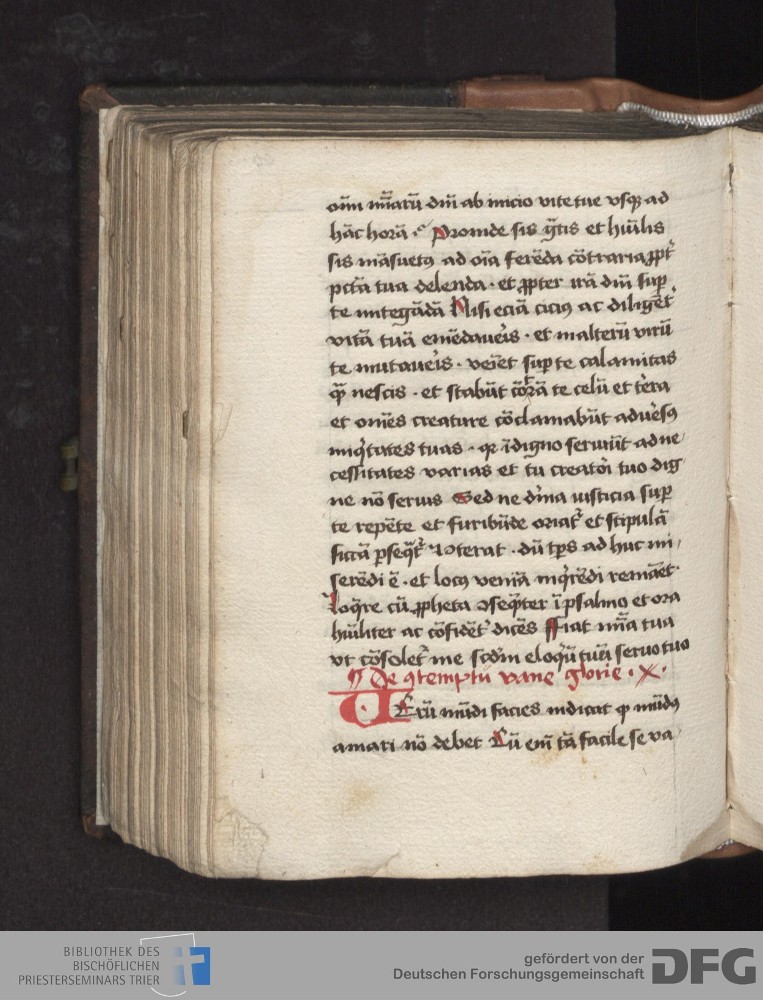 om̄ mīaꝝ dn̄i ab inicio vite tue vsqꝫ ad
hāc horā · Proinde sis gͣtis et hūilis
sis māsuetꝰ ad oīa ferēda cōtraria ꝓpt̄
pctā tua delenda · et ꝓpter irā dn̄i suꝑ
te mitegādā Nisi eciā ciciꝰ ac diligēt̄
vitā tuā emēdaueīs · et in alterū virū
te mutaueīs · veīet suꝑ te calamitas
qͣ̄ nescis · et stabūt corā te celū et tēra
et om̄es creature cōclamabūt aduēsꝰ
iniqͥtates tuas · qꝛ īdigno seruiūt ad ne
cessitates varias et tu creatori tuo dig
ne nō seruis Sed ne diīna iusticia suꝑ
te repēte et furibūde oriat̄ et stipulā
siccā ꝑseqͣt̄ vt erat · dū tp̄s ad huc mi
serēdi ē · et locꝰ veniā inqͥrēdi remāet
loqͣre cū ꝓpheta ꝯseqͣ̄ter ī psalmo et ora
hūiliter ac cōfidēt̄ dicēs Fiat mīa tua
vt cōsolet̄ me scd̄m eloqͥū tuū seruo tuo
¶ De ꝯtemptu vane glorie · X ·
UErū mūdi facies indicat ꝙ mūdꝰ
amari nō debet Cū em̄ tā facile se va
BIBLIOTHEK DES
BISCHÖFLICHEN
PRIESTERSEMINARS TRIER
gefördert von der
Deutschen Forschungsgemeinschaft
DFG